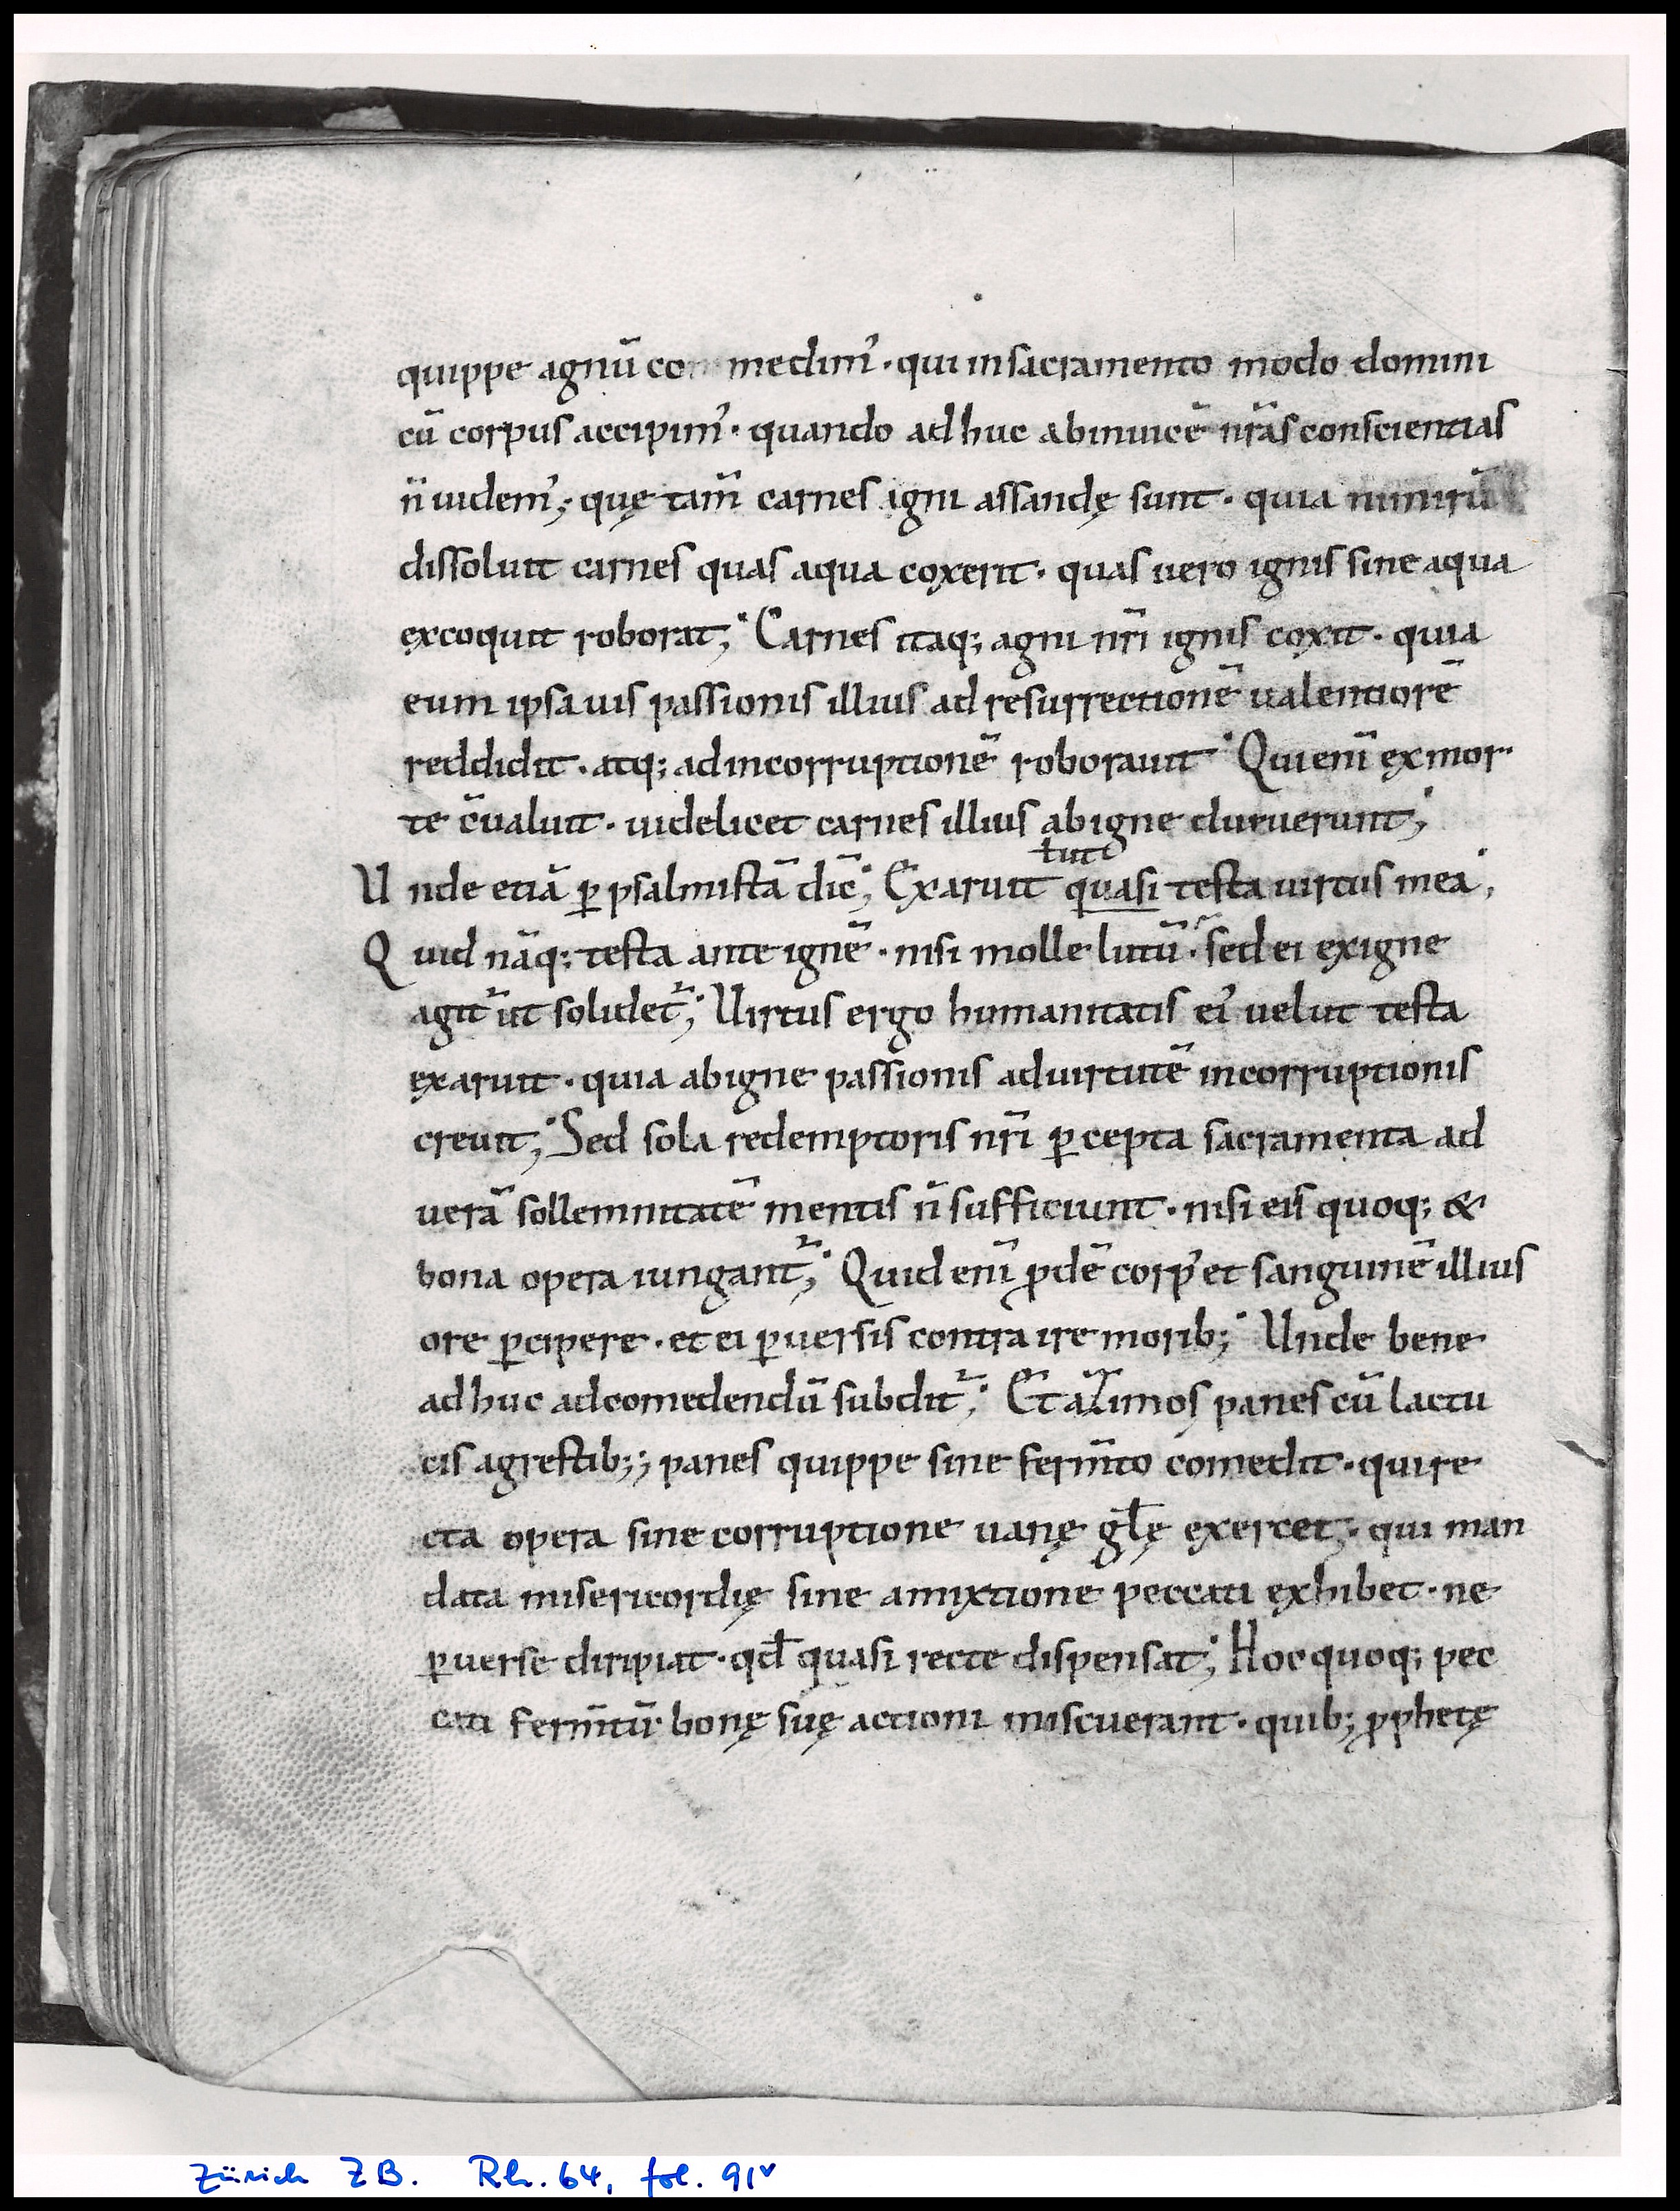 quippe agnū co medim᾿ · qui in sacramento modo domini
cū corpus accipim᾿ · quando ad huc abinuicē nr̄as conscientias
n̄ uidem᾿; quę tam̄ carnes igni assandę sunt · quia nimirū
dissoluit carnes quas aqua coxerit · quas uero ignis sine aqua
excoquit roborat; Carnes itaq; agni nr̄i ignis coxit · quia
eum ipsa uis passionis illius ad resurrectionē ualentiorē
reddidit · atq; ad incorruptionē roborauit Qui eni̅ ex mor
te c̄ualuit · uidelicet carnes illius ab igne duruerunt;
ł uti
U nde etiā ꝑ psalmistā dic̄; Exaruit quasi testa uirtus mea;
Q uid nāq; testa ante ignē · nisi molle lutū · sed ei ex igne
agit᷑ ut solidet᷑; Uirtus ergo humanitatis ei᾿ uelut testa
exaruit · quia ab igne passionis ad uirtutē incorruptionis
creuit; Sed sola redemptoris nr̄i ꝑcepta sacramenta ad
uerā sollemnitatē mentis n̄ sufficiunt · nisi eis quoq; &
bona opera iungant᷑; Quid eni̅ ꝓdē corp᾿ et sanguinē illius
ore ꝑcipere · et ei ꝑuersis contra ire morib; Unde bene
ad huc ad comedendū subdit᷑; Et azimos panes cū lactu
cis agrestib;; panes quippe sine ferm̄to comedit · qui re
cta opera sine corruptione uanę gl̄ę exercet; qui man
data misericordię sine amixtione peccati exhibet · ne
ꝑuerse diripiat · qd̄ quasi recte dispensat; Hoc quoq; pec
cati ferm̄tū bonę suę actioni miscuerant · quib; ꝓphetę
Zürich ZB. Rh. 64, fol. 91ᵛ